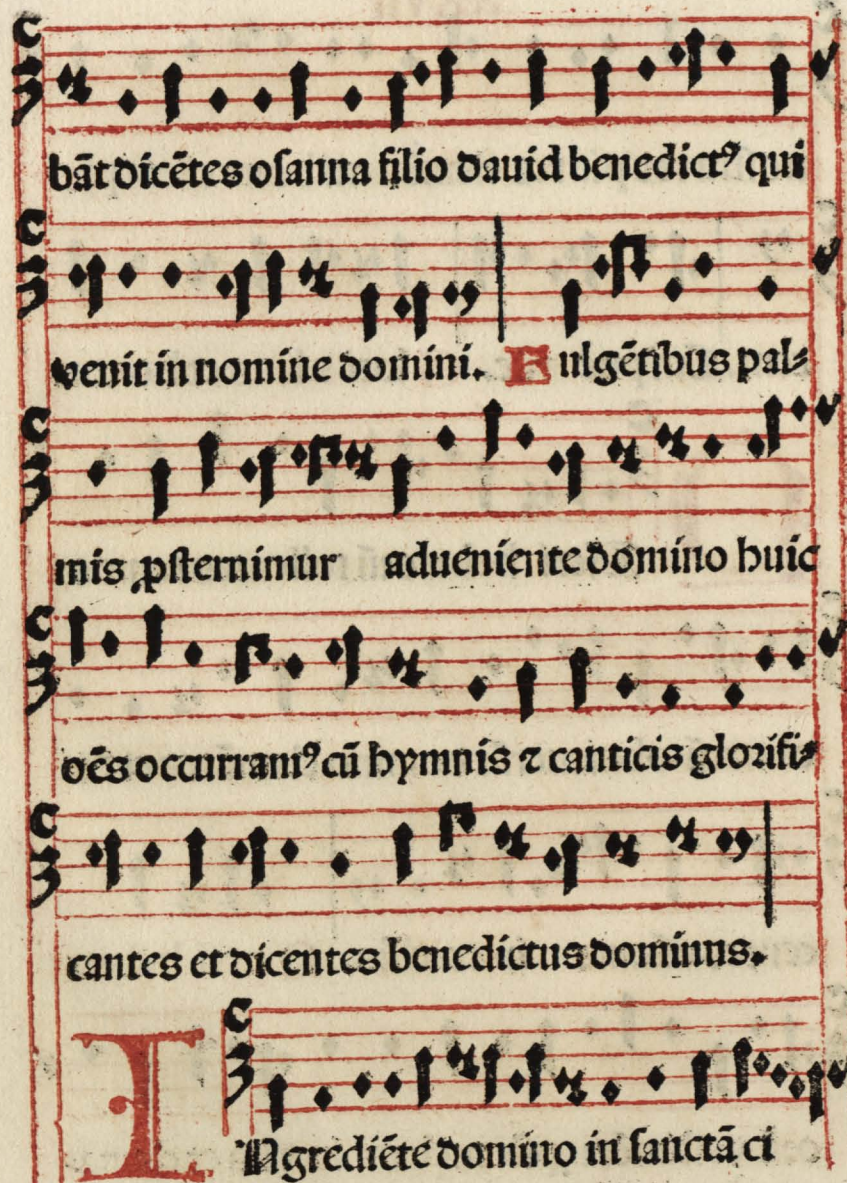 bāt dicētes osanna filio dauid benedictꝰ qui
venit in nomine domini. Fulgētibus pal⸗
mis ꝓsternimur adueniente domino huic
oēs occurramꝰ cū hymnis ⁊ canticis glorifi⸗
cantes et dicentes benedictus dominus.
INgrediēte domino in sanctā ci